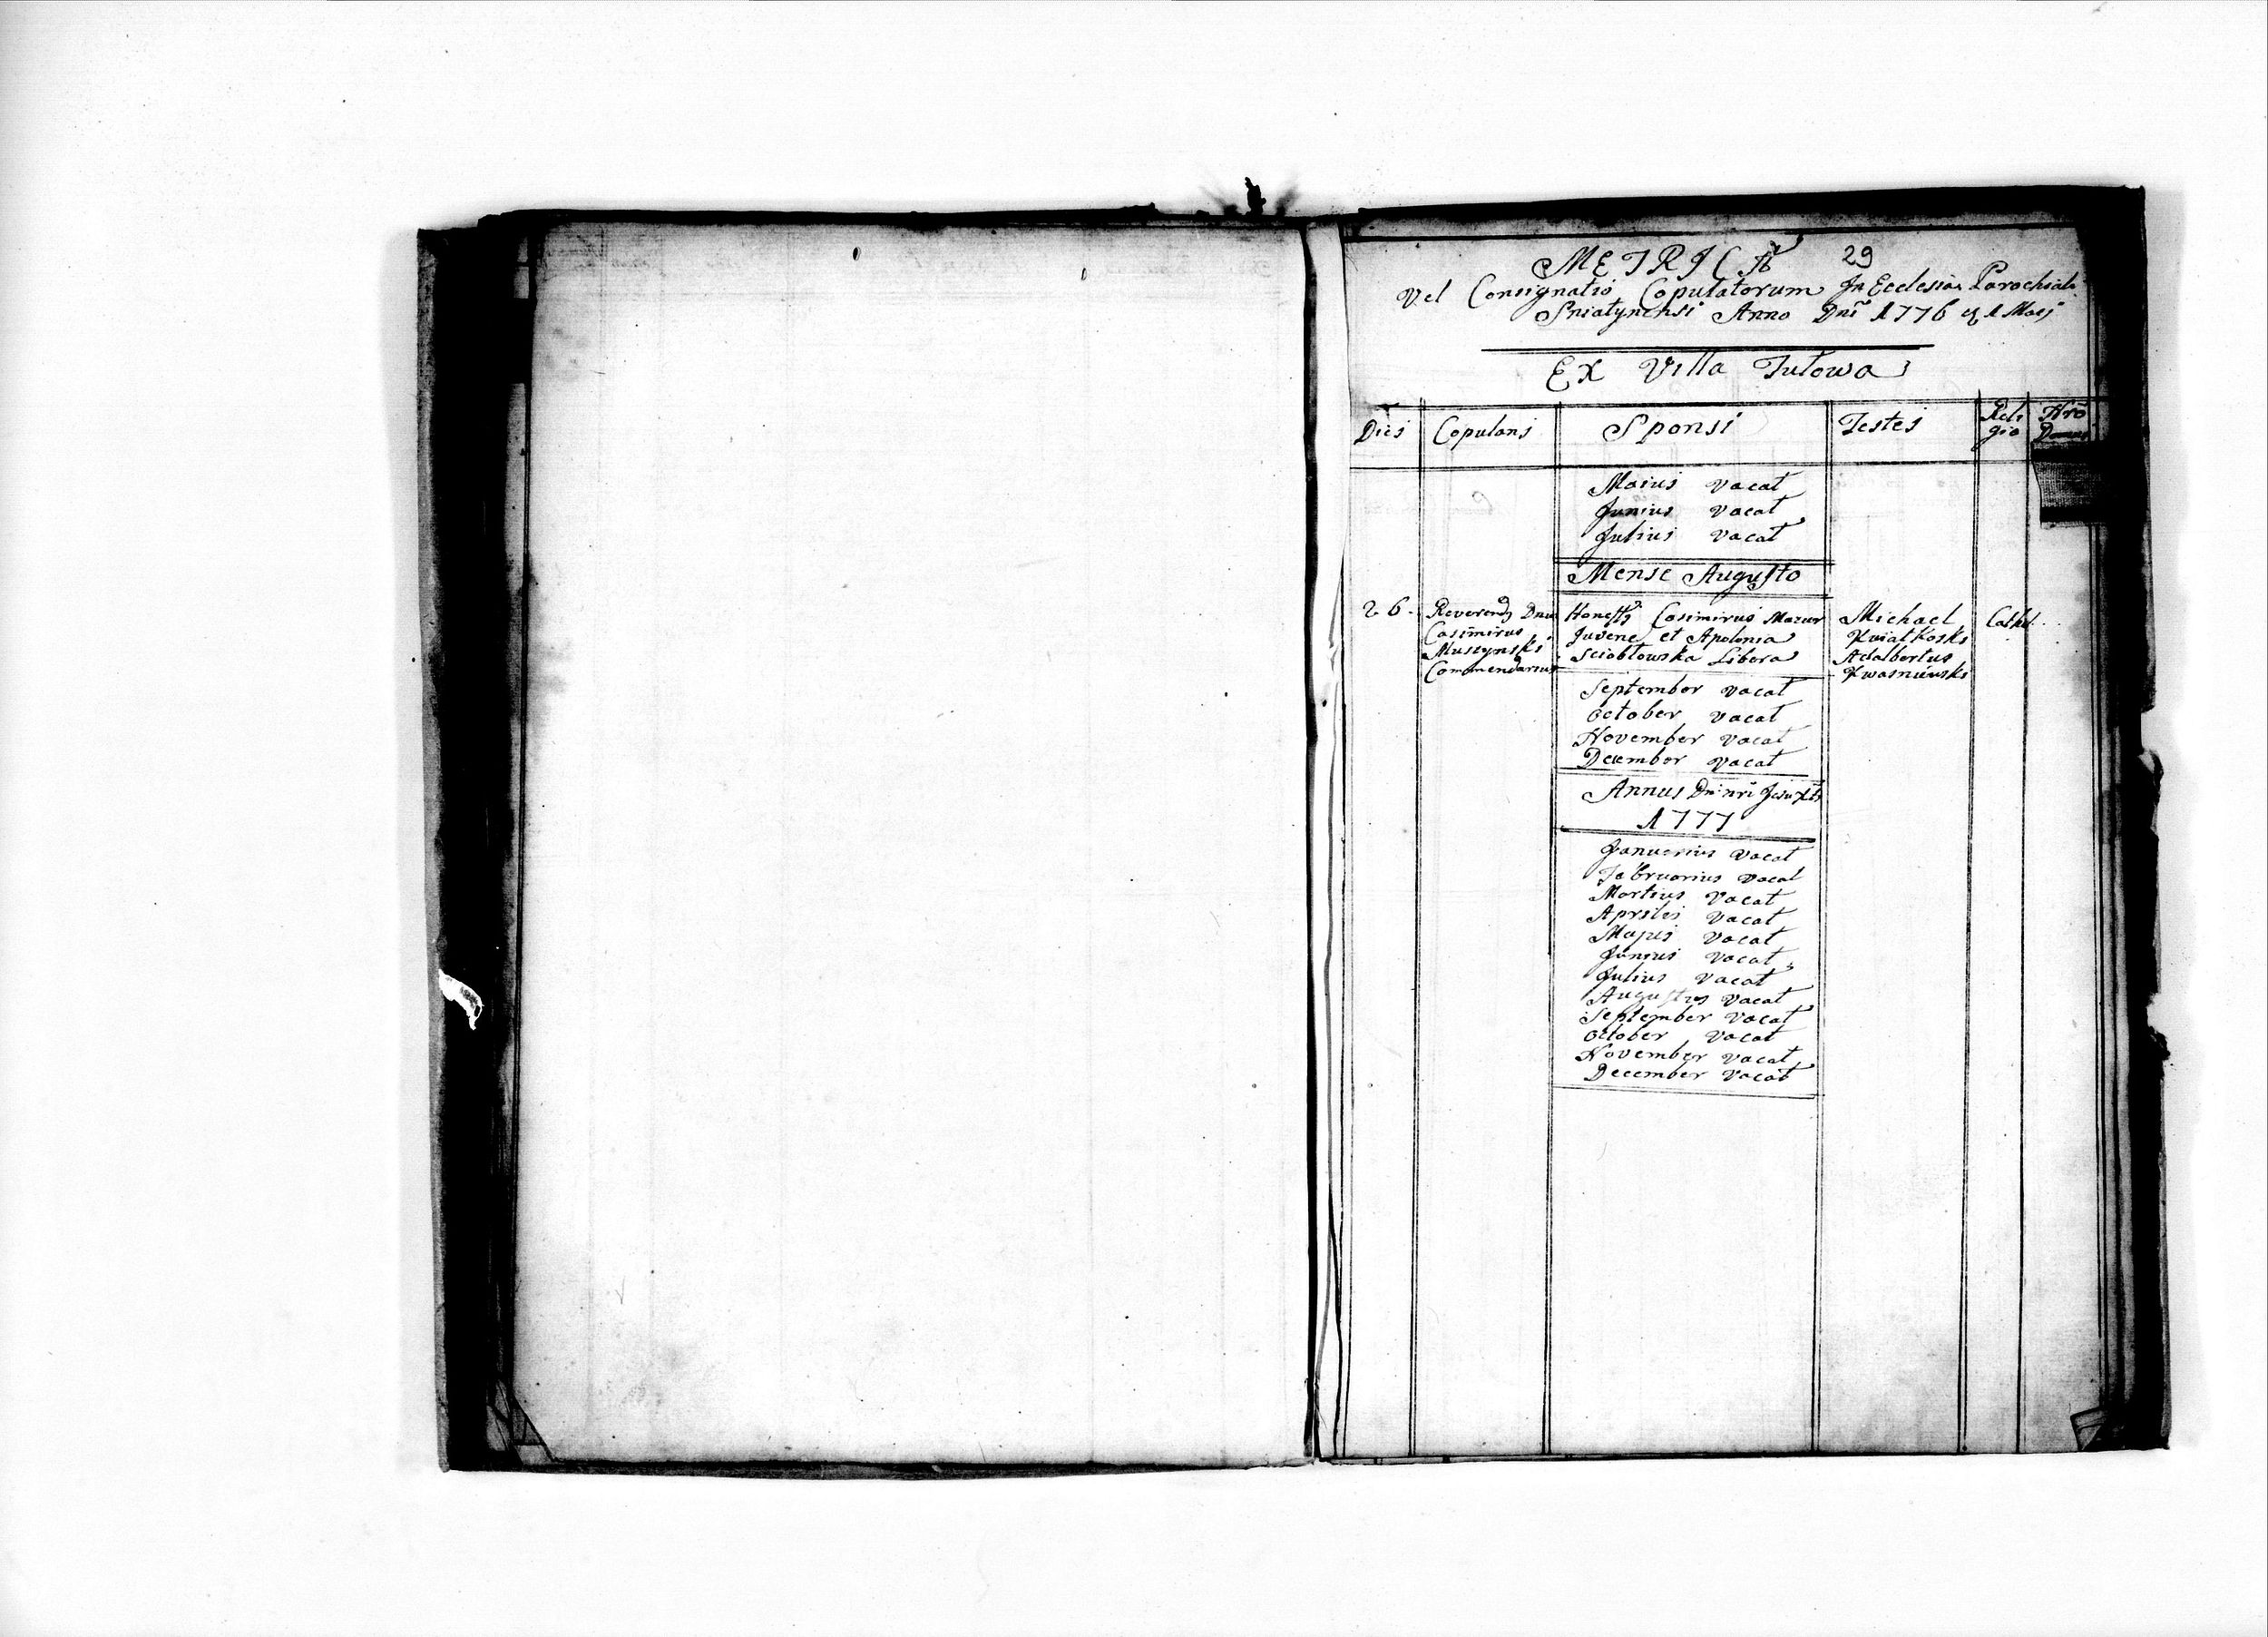 METRICA 29
Vel Consignatio Copulatorum In Ecclesia Parochiali
Sniatynensi Anno Dni 1776 1 Maij
Ex Villa Tułowa
Dies Copulans Sponsi Testes Reli
gio Nro
Domus
Maius vacat
Junius vacat
Julius vacat
Mense Augusto
26.
Reverend9 Dnus
Casimirus
Commendarius
Honest9 Casimirus Mazur
Juvene et Apolonia
Libera
Michael
Kwiatkoski
Adalbertus
Kwasniewski
Cathol.
September vacat
October vacat
November vacat
December vacat
Annus Dni nri Jesu Xti
1777
Januarius vacat
Februarius vacat
Martius vacat
Aprilis vacat
Majus vacat
Junius vacat
Julius vacat
Augustus vacat
September vacat
October vacat
November vacat
December vacat